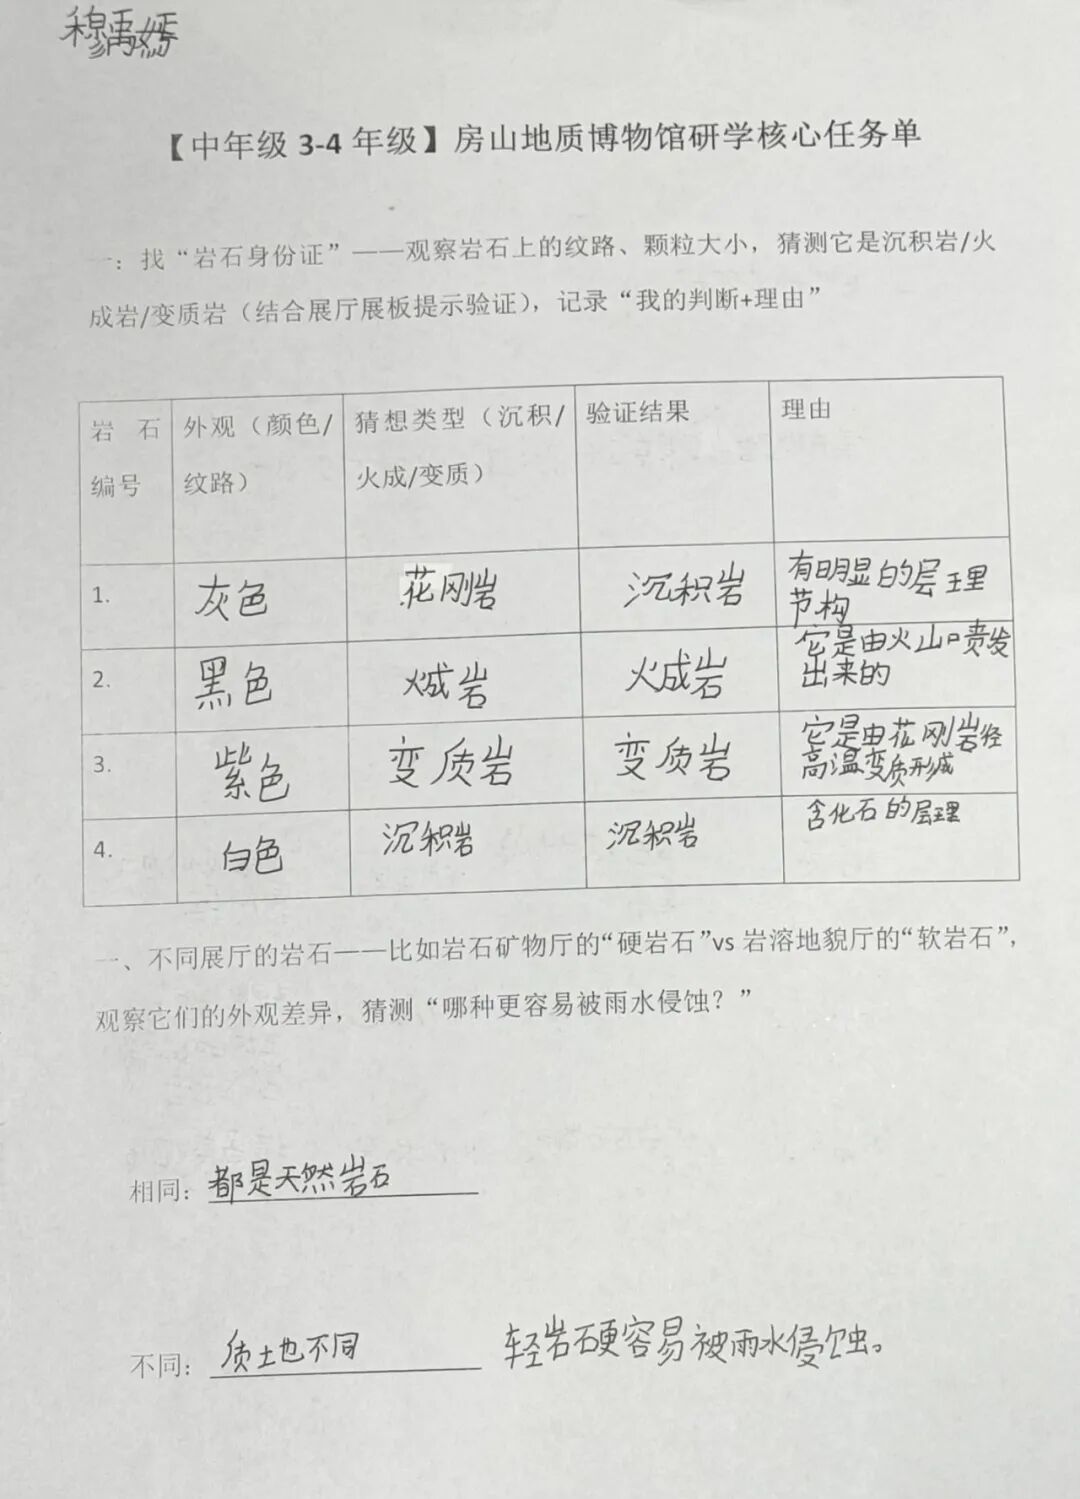 穆禹嫣
【中年级 3-4 年级】房山地质博物馆研学核心任务单
一：找“岩石身份证”——观察岩石上的纹路、颗粒大小，猜测它是沉积岩/火
成岩/变质岩（结合展厅展板提示验证），记录“我的判断+理由”
岩石 外观（颜色/ 猜想类型（沉积/ 验证结果 理由
编号 纹路） 火成/变质）
1. 灰色 花刚岩 沉积岩 有明显的层理
节构
2. 黑色 火成岩 火成岩 它是由火山口喷发
出来的
3. 紫色 变质岩 变质岩 它是由花刚岩经
高温变质形成
4. 白色 沉积岩 沉积岩 含化石的层理
一、不同展厅的岩石——比如岩石矿物厅的“硬岩石”vs 岩溶地貌厅的“软岩石”，
观察它们的外观差异，猜测“哪种更容易被雨水侵蚀？”
相同：都是天然岩石
不同：质地不同 轻岩石更容易被雨水侵蚀。